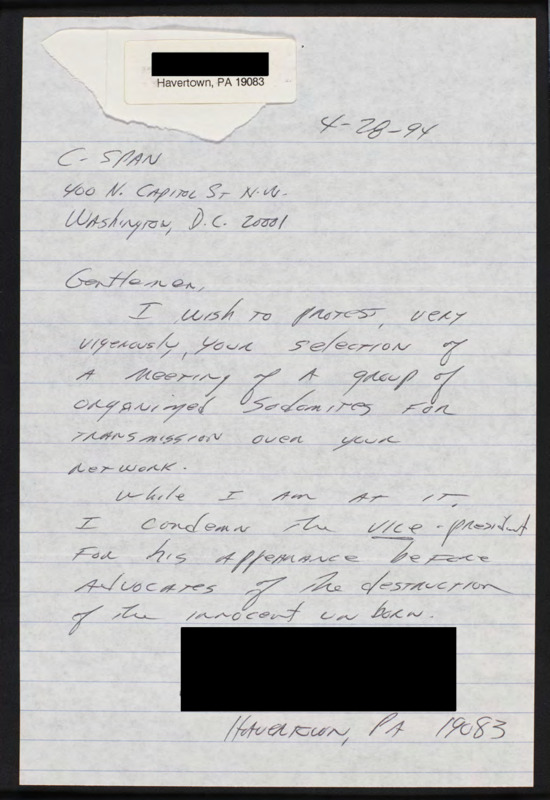 Havertown, PA 19083
4-28-94
C-SPAN
400 N. Capitol St N.W.
Washington, D.C. 20001
Gentlemen,
I wish to protest, very
vigorously, your selection of
a meeting of a group of
organized Sodomites for
transmission over your
network.
While I am at it,
I condemn the vice-president
for his appearance before
advocates of the destruction
of the innocent un born.
Havertown, PA 19083